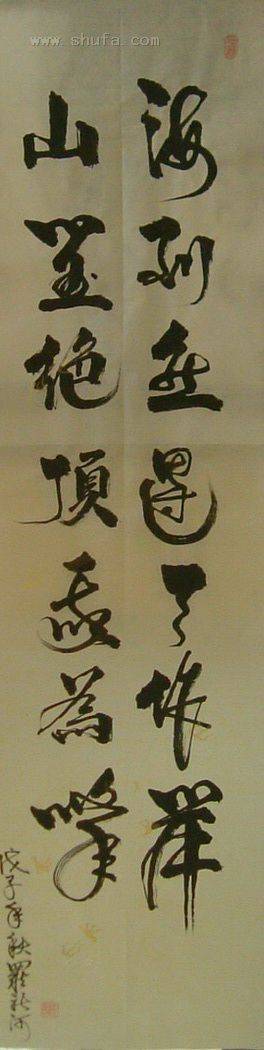 www.shufa.com
海到無邊天作岸
山登絶頂我為峯
戊子年秋羅